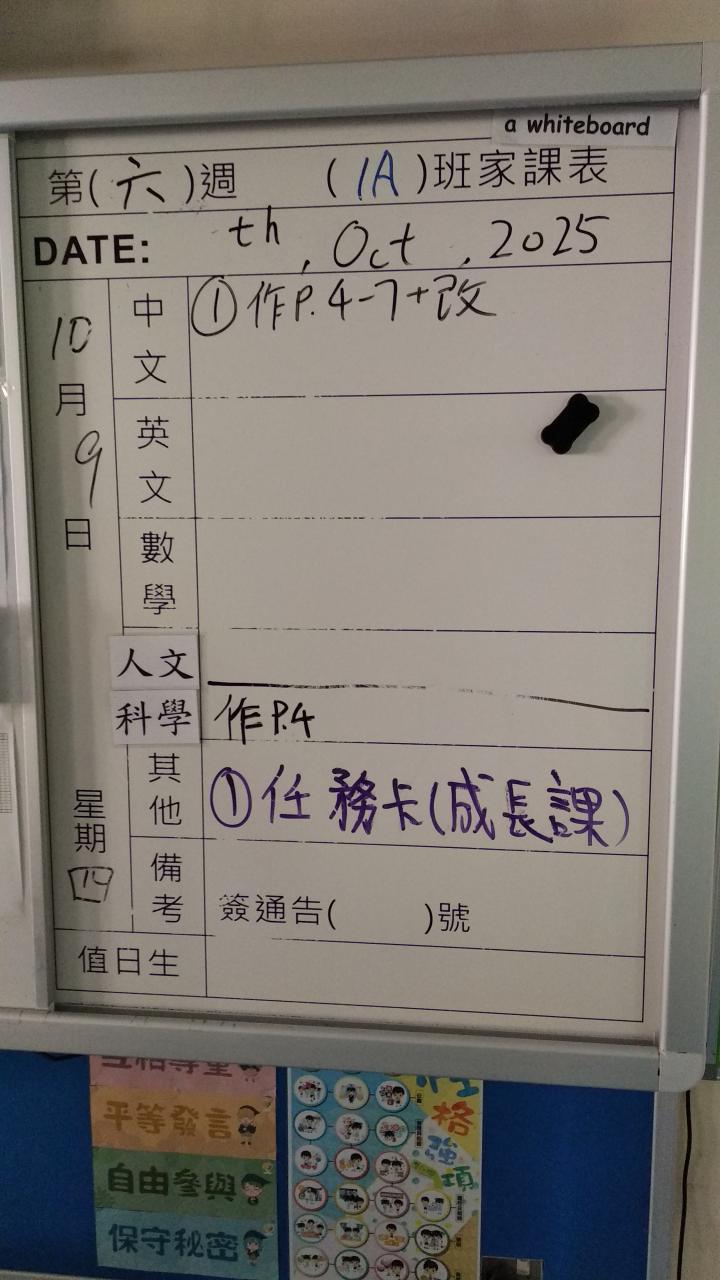 a whiteboard
第(六)週 (1A)班家課表
DATE: th, Oct, 2025
10月9日
星期四
中文 ①作P.4-7+改
英文
數學
人文
科學 作P.4
其他 ①任務卡(成長課)
備考 簽通告( )號
值日生
互相尊重
平等發言
自由參與
保守秘密
性格強項